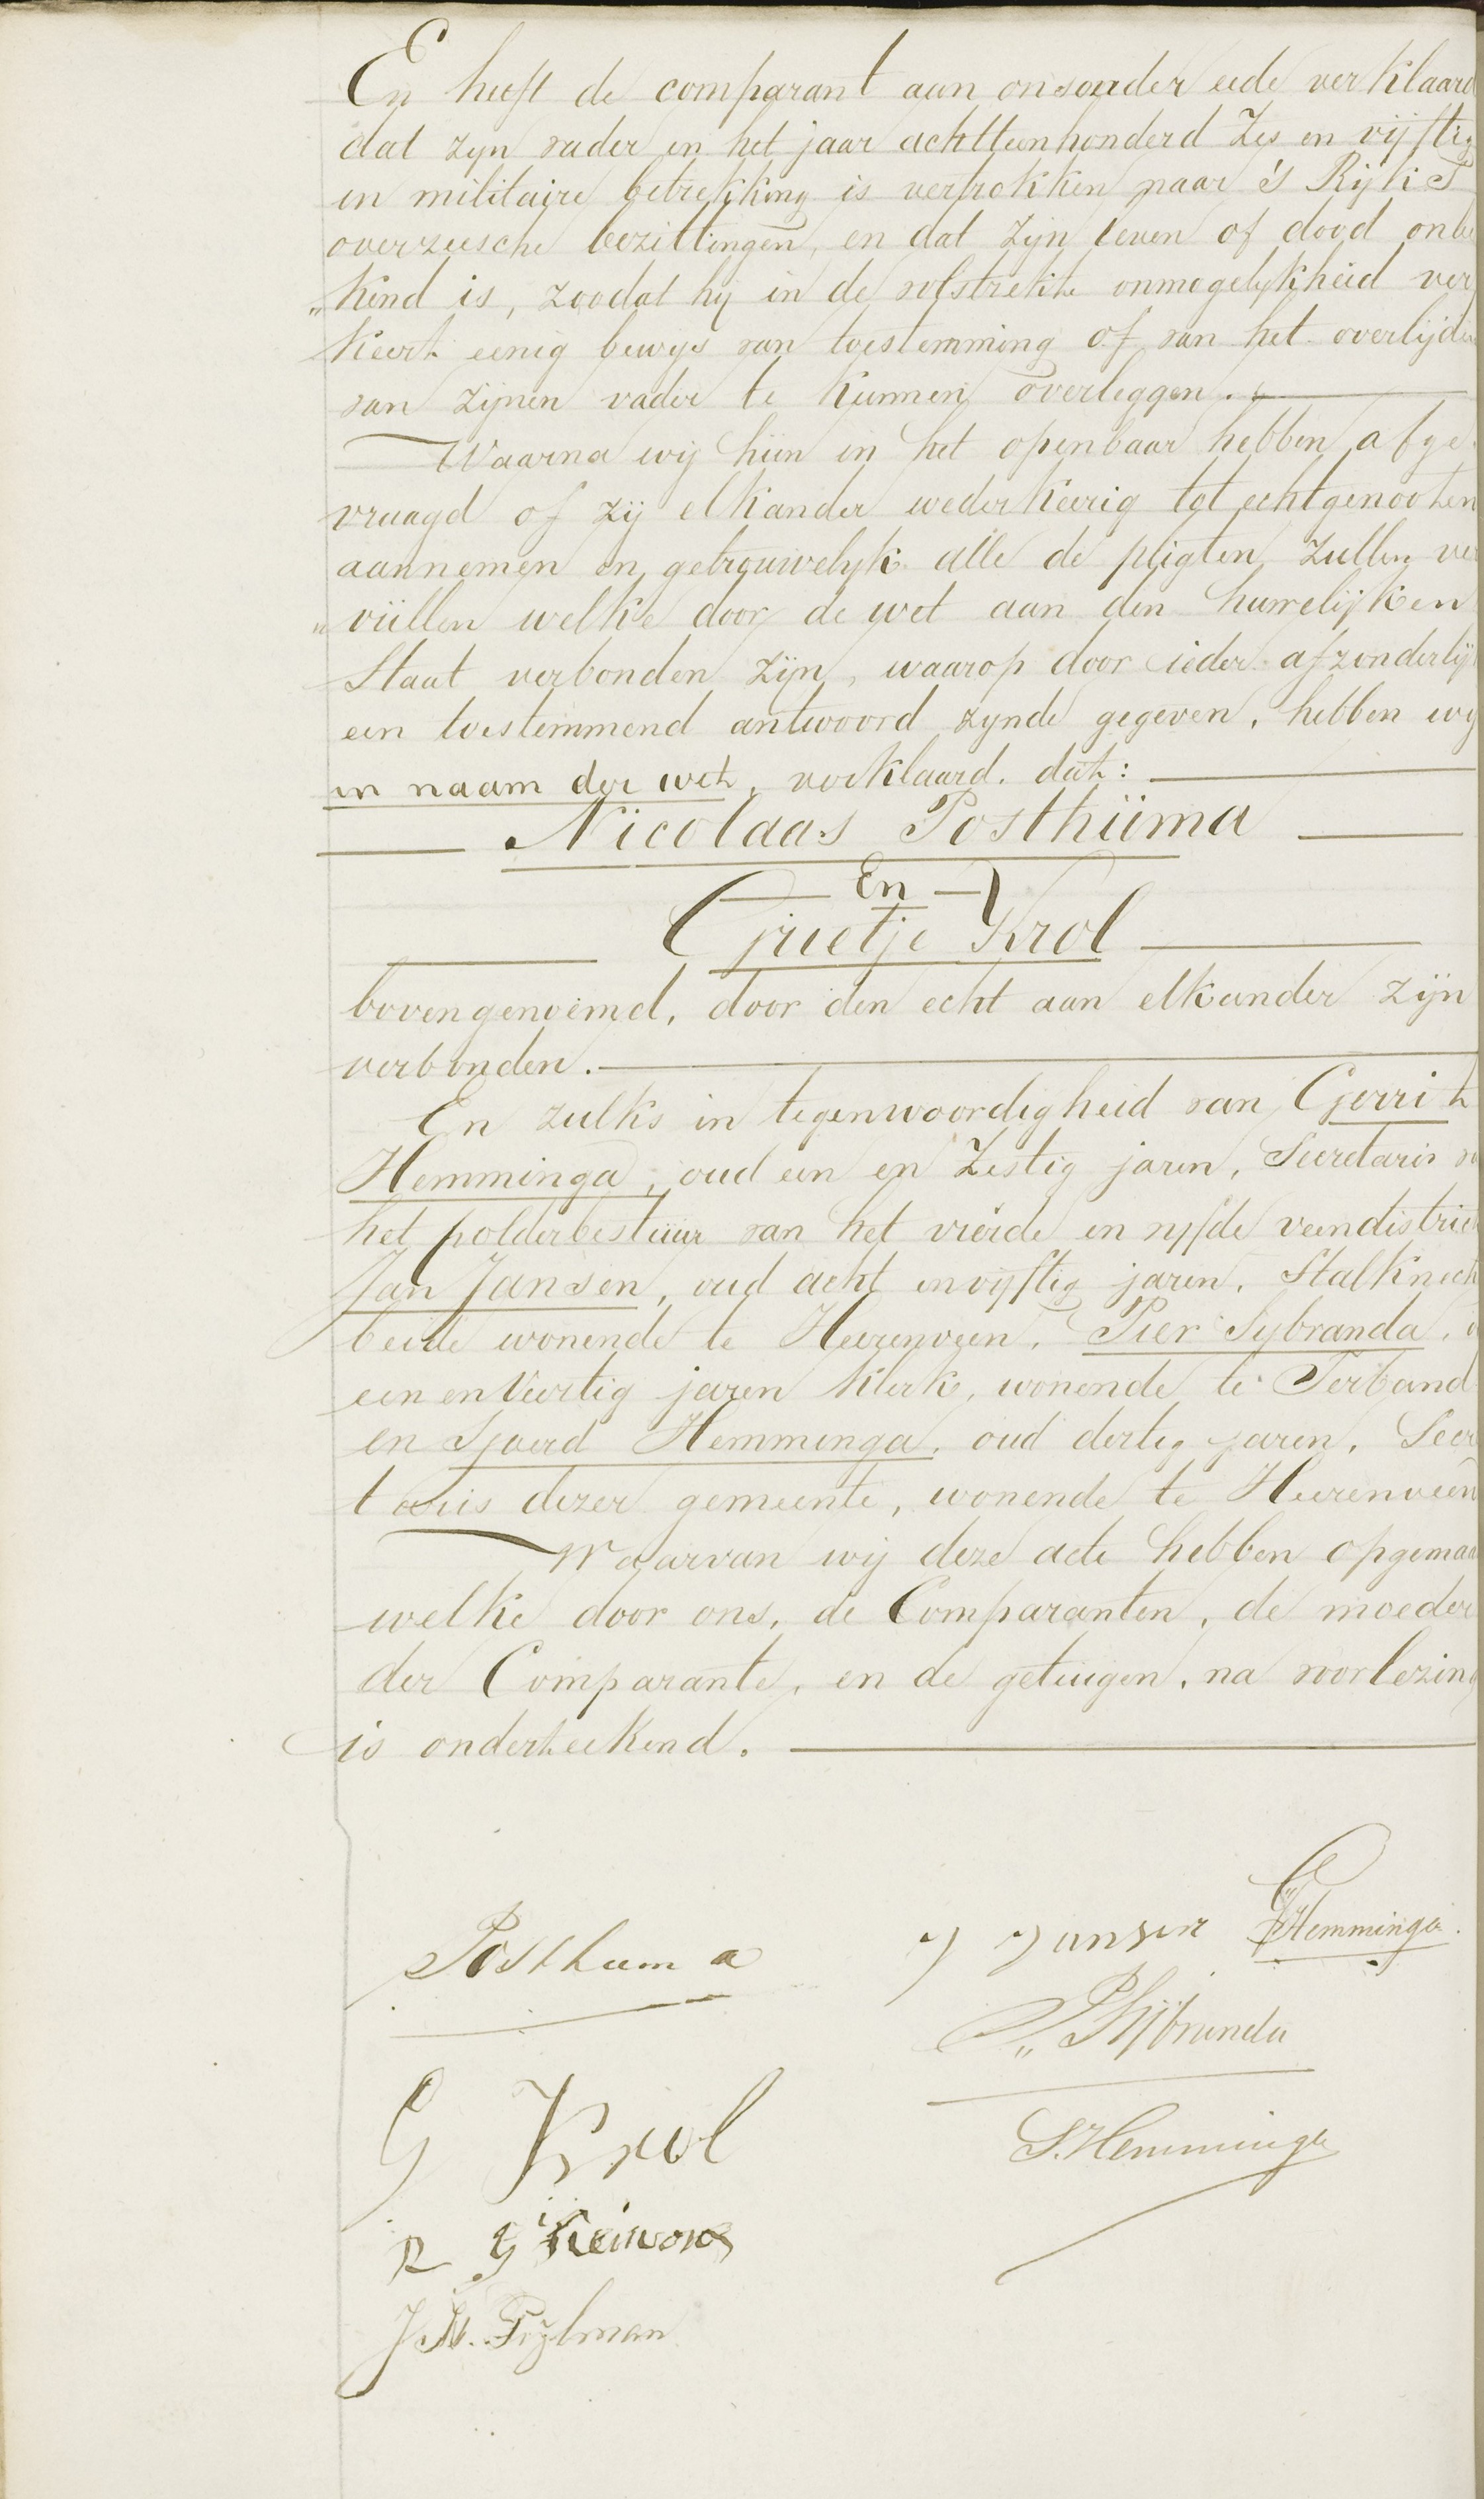 En heeft de comparant aan ons onder eede verklaard
dat zijn vader in het jaar achttienhonderd Zes en vijftig
in militaire betrekking is vertrokken naar 's Rijks
overzeesche bezittingen, en dat zijn leven of dood onbe
„kend is, zoodat hij in de volstrekte onmogelykheid ver
keert eenig bewijs van toestemming of van het overlijden
van zijnen vader te kunnen overleggen.
Waarna wij hun in het openbaar hebben afge
vraagd of zij elkander wederkeerig tot echtgenooten
aannemen en getrouwelyk alle de pligten zullen ver
„vüllen welke door de wet aan den huwelijken
Staat verbonden zijn, waarop door ieder afzonderlijk
een toestemmend antwoord zynde gegeven, hebben wy
in naam der wet, verklaard, dat:
Nicolaas Posthüma
En
Grietje Krol
bovengenoemd, door den echt aan elkander zijn
verbonden.
En zulks in tegenwoordigheid van Gerrit
Hemminga, oud een en Zestig jaren, Secretaris v
het polderbestüur van het vierde en vyfde veendistrict
Jan Jansen, oud acht en vijftig jaren, Stalknecht
beide wonende te Heerenveen, Pier Sybranda, o
een en Veertig jaren Klerk, wonende te Terband
en Sjoerd Hemminga, oud dertig jaren, Secr
taris dezer gemeente, wonende te Heerenveen
Waarvan wij deze acte hebben opgemaa
welke door ons, de Comparanten, de moeder
der Comparante, en de getuigen, na voorlezing
is onderteekend.
Posthuma
J Jansen
G Hemminga.
P. Sijbranda
G Krol
S. Hemminga
R G
J